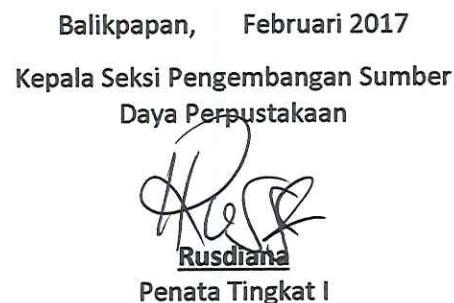 Balikpapan, Februari 2017
Kepala Seksi Pengembangan Sumber
Daya Perpustakaan
Rusdiana
Penata Tingkat I